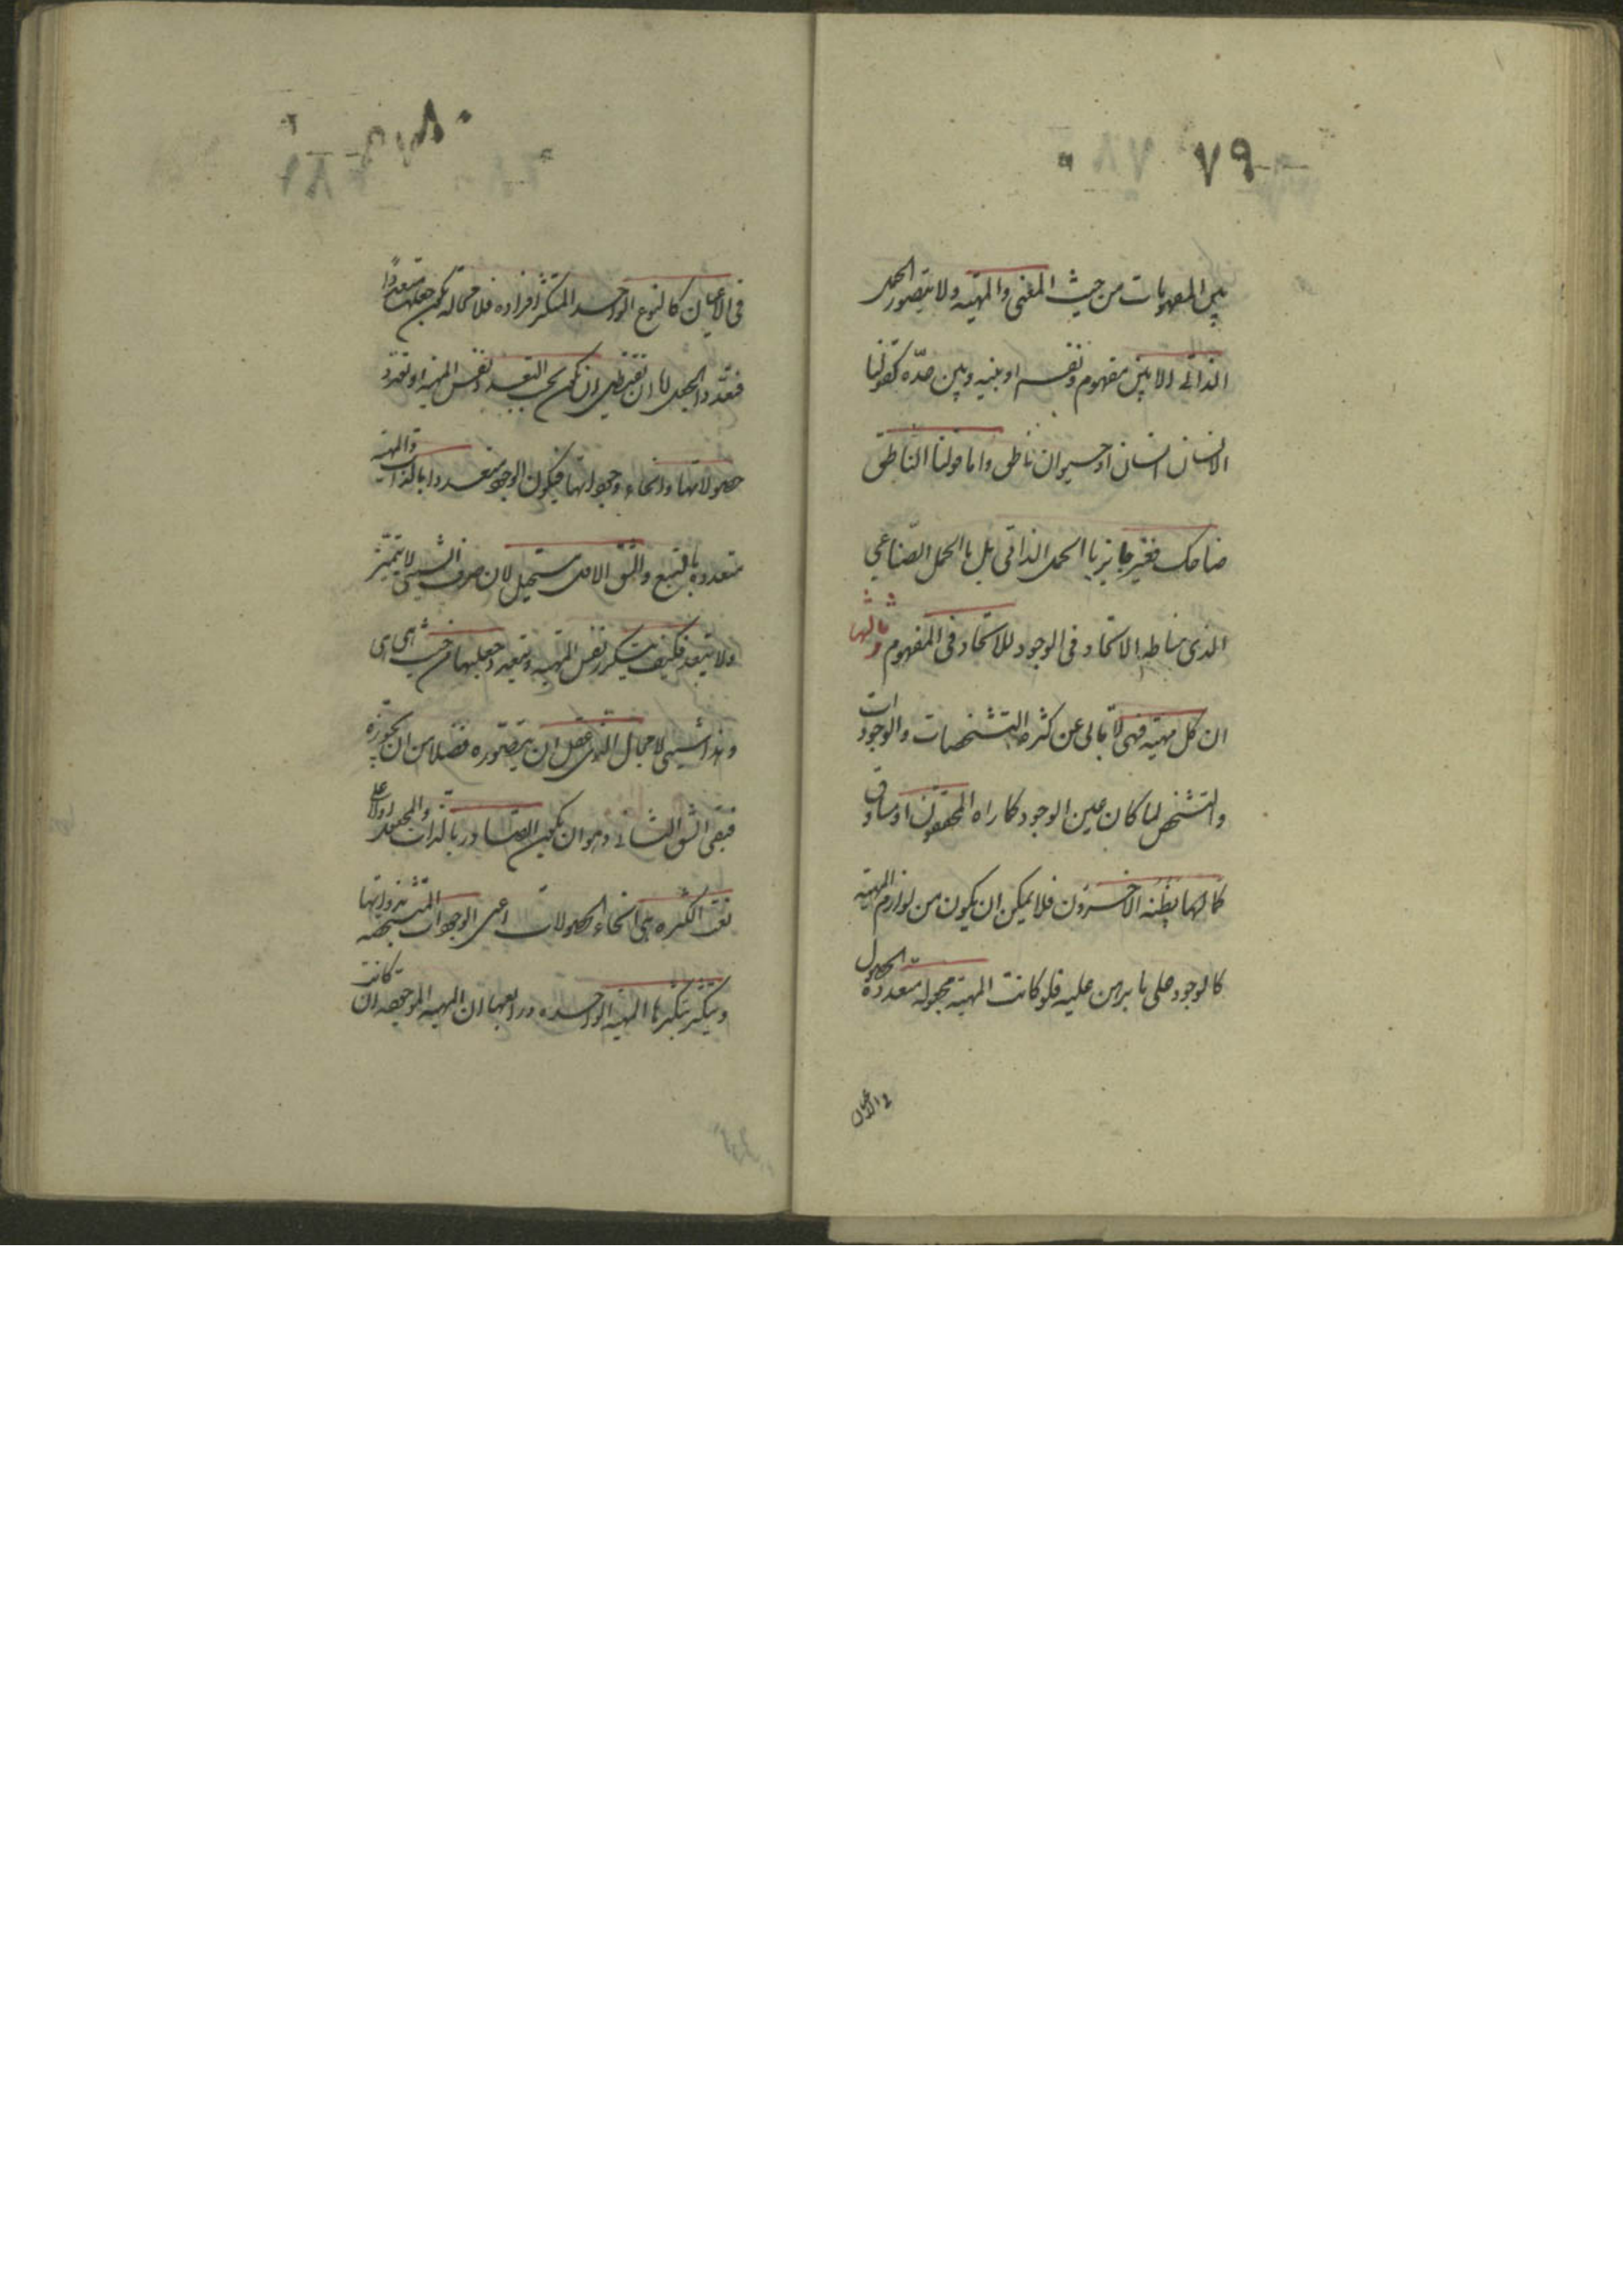 ٧٩
بين المفهومات من حيث المعنى والمهية ولا يتصور الحمل
الذاتي الا بين مفهوم ونفسه او بينه وبين حدّه كقولنا
الانسان انسان او حيوان ناطق واما قولنا الناطق
ضاحك فغير جايز بالحمل الذاتي بل بالحمل الصّناعي
الذي مناطه الاتحاد في الوجود للاتحاد في المفهوم وثالثها
ان كل مهية فهي لا تابى عن كثرة التشخصات والوجودات
والتشخص لما كان عين الوجود كما راه المحققون او مساوق
كما يظنه الاخرون فلا يمكن ان يكون من لوازم المهية
كالوجود على ما برهن عليه فلو كانت المهية مجعولة متعددة الحصول
في الاعيان
في الاعيان كالنوع الواحد المتكثر افراده فلا محالة يكون جعلها متعددًا
فتعدد الجعل اما ان يقتضي ان يكون بحسب تعدد نفس المهية او تعدد
حصولاتها وانحاء وجوداتها فيكون الوجود متعددا بالذات والمهية
متعددة بالتبع والشق الاول مستحيل لان صرف الشيئ لا يتميز
ولا يتعدد فكيف يتكرر نفس المهية ويتعدد جعلها من حيث هي هي
وهذا شيئ لا مجال لذي عقل ان يتصوره فضلا من ان يجوزه
فبقي الشق الثاني وهو ان يكون الصادر بالذات والمجعول اولا على
نعت الكثرة هي انحاء الحصولات اعني الوجودات المتشخصة بذواتها
ويتكثر بتكثرها المهية الواحدة ورابعها ان المهية الموجودة ان كانت